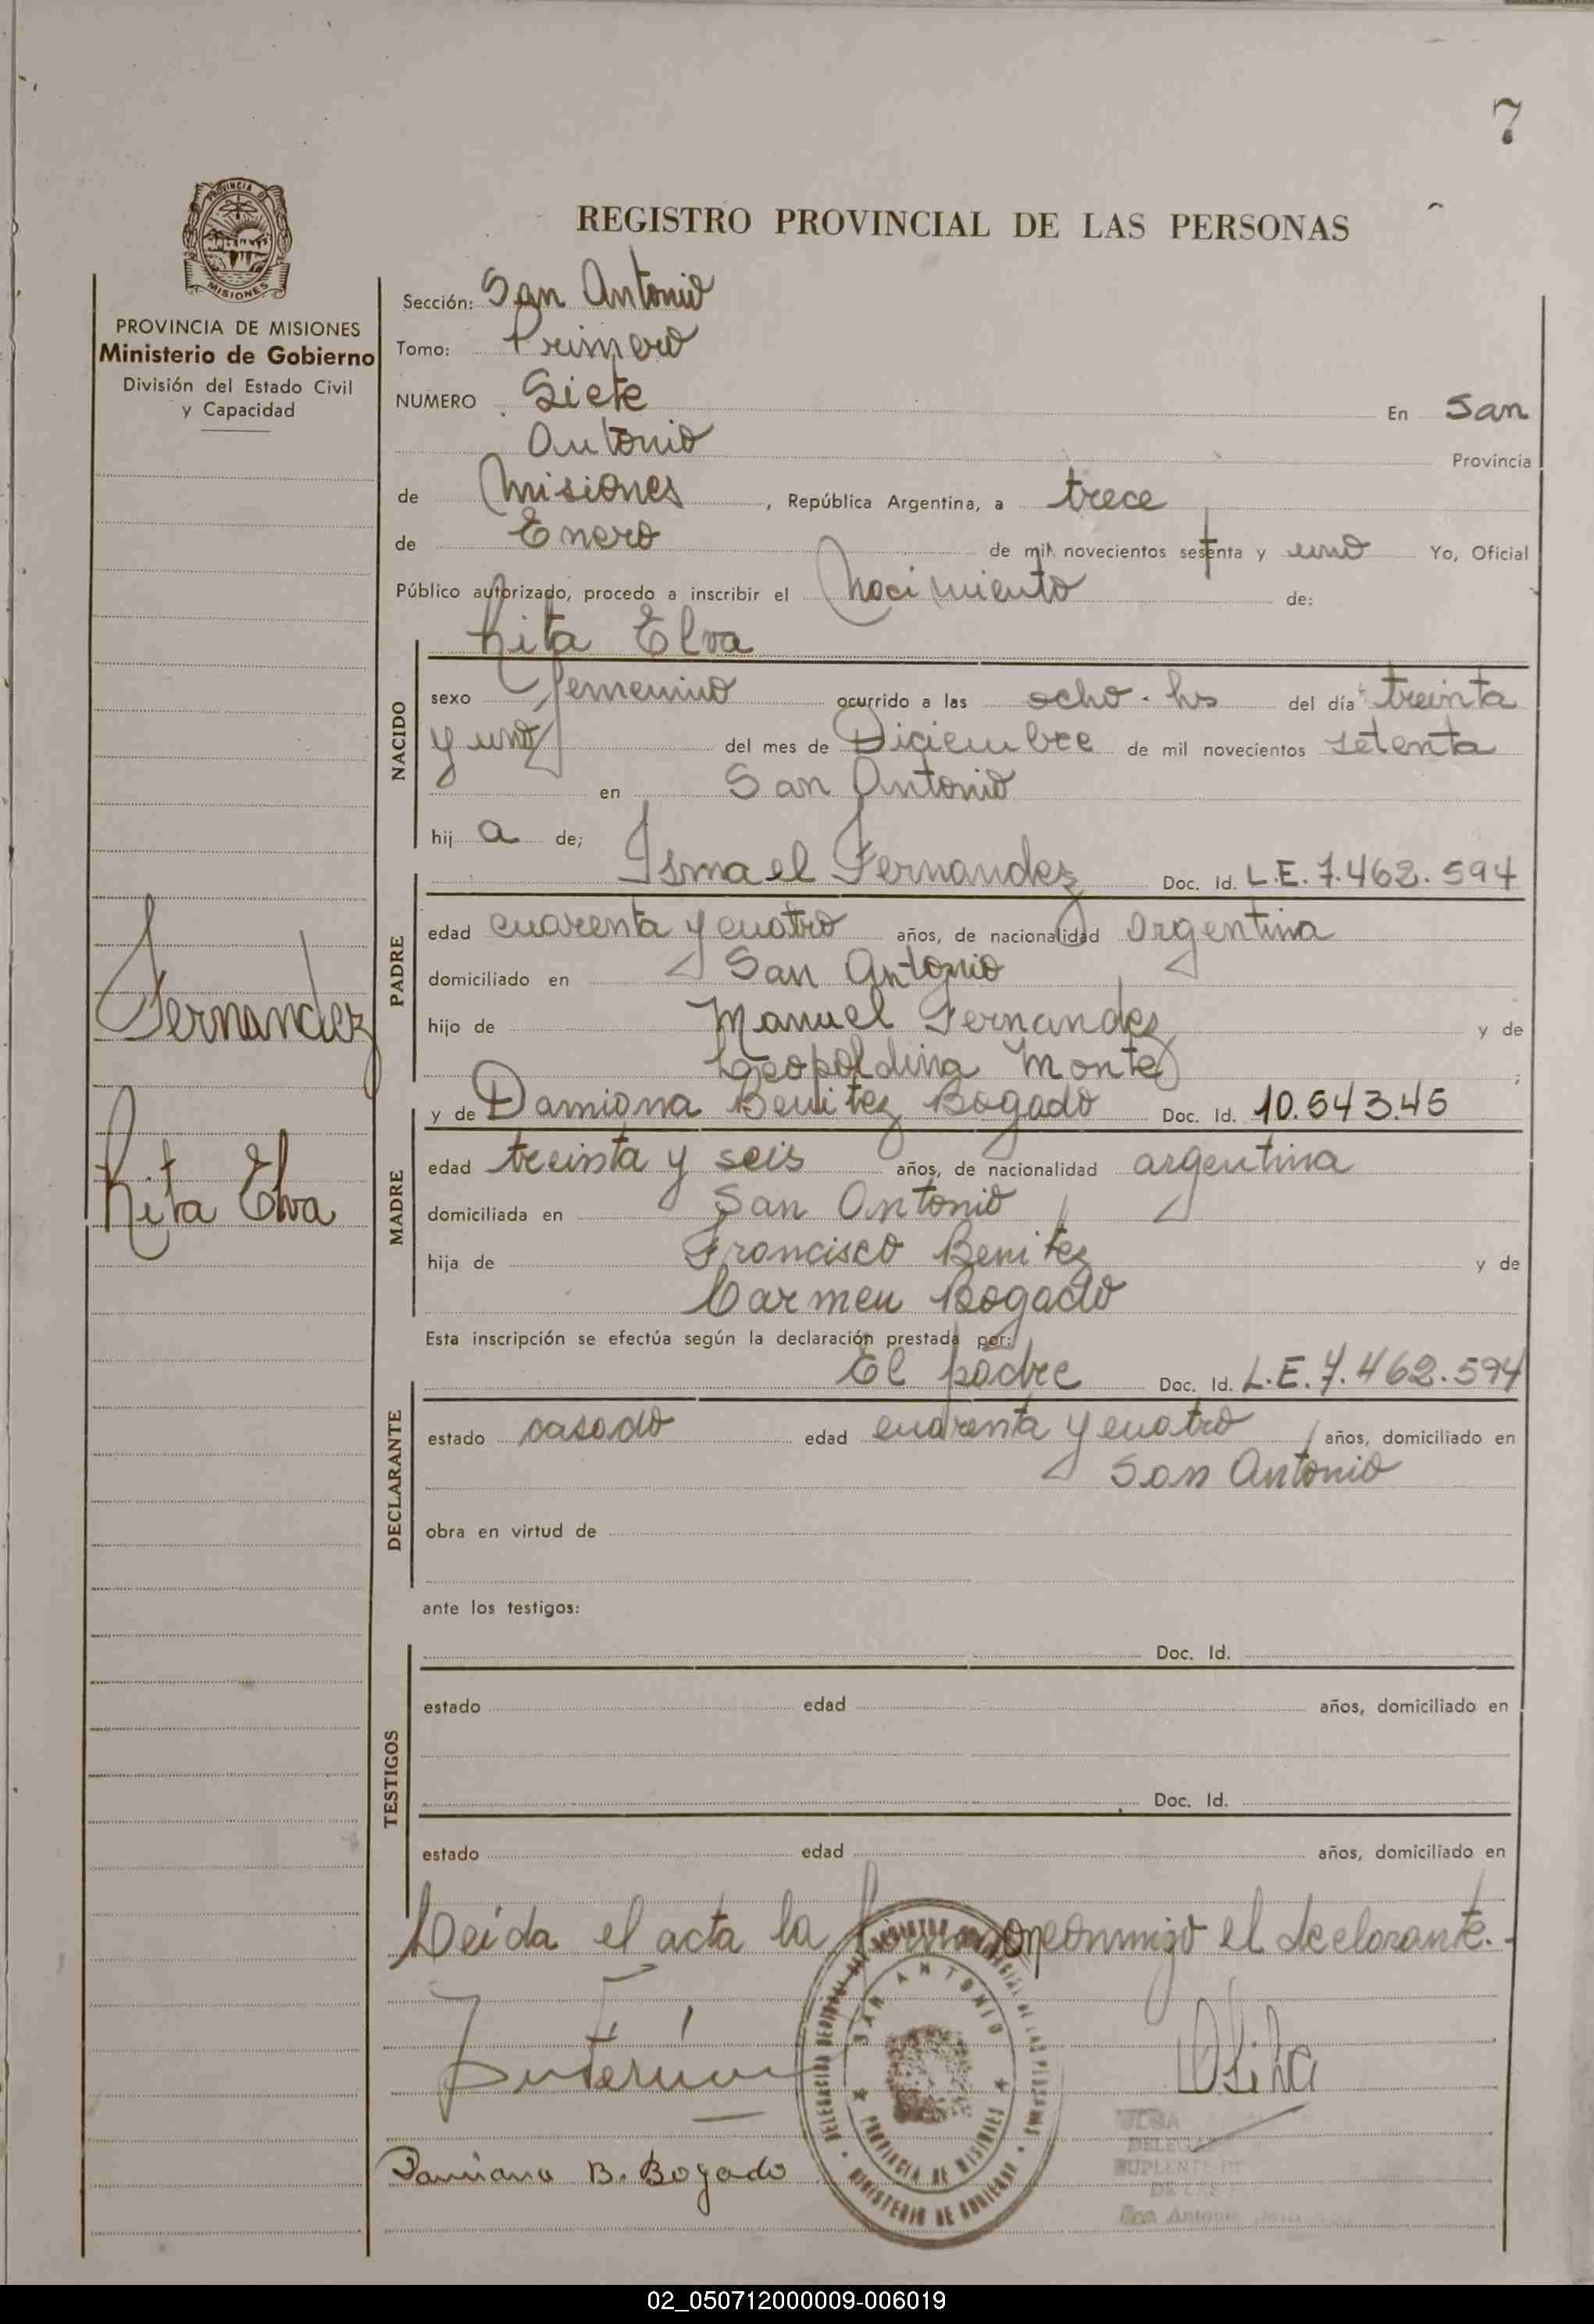 7
PROVINCIA DE
MISIONES
PROVINCIA DE MISIONES
Ministerio de Gobierno
División del Estado Civil
y Capacidad
REGISTRO PROVINCIAL DE LAS PERSONAS
Sección: San Antonio
Tomo: Primero
NUMERO Siete En San
Antonio Provincia
de Misiones, República Argentina, a trece
de Enero de mil novecientos sesenta y uno Yo, Oficial
Público autorizado, procedo a inscribir el Nacimiento de:
Rita Elva
NACIDO
sexo femenino ocurrido a las ocho. hs del día treinta
y uno del mes de Diciembre de mil novecientos setenta
en San Antonio
hij a de;
Ismael Fernandez Doc. Id. L.E. 7.462.594
PADRE
edad cuarenta y cuatro años, de nacionalidad argentina
domiciliado en San Antonio
hijo de Manuel Fernandez y de
Leopoldina Montes;
y de Damiana Benitez Bogado Doc. Id. 10.543.45
MADRE
edad treinta y seis años, de nacionalidad argentina
domiciliada en San Antonio
hija de Francisco Benitez y de
Carmen Bogado
Fernandez
Rita Elva
Esta inscripción se efectúa según la declaración prestada por:
El padre Doc. Id. L.E. 7.462.594
DECLARANTE
estado casado edad cuarenta y cuatro años, domiciliado en
San Antonio
obra en virtud de
ante los testigos:
Doc. Id.
TESTIGOS
estado edad años, domiciliado en
Doc. Id.
estado edad años, domiciliado en
Leida el acta la conmigo el declarante.
SAN ANTONIO
PROVINCIA DE MISIONES
MINISTERIO DE GOBIERNO
Damiana B. Bogado
OLGA
SUPLENTE
San Antonio
02_050712000009-006019